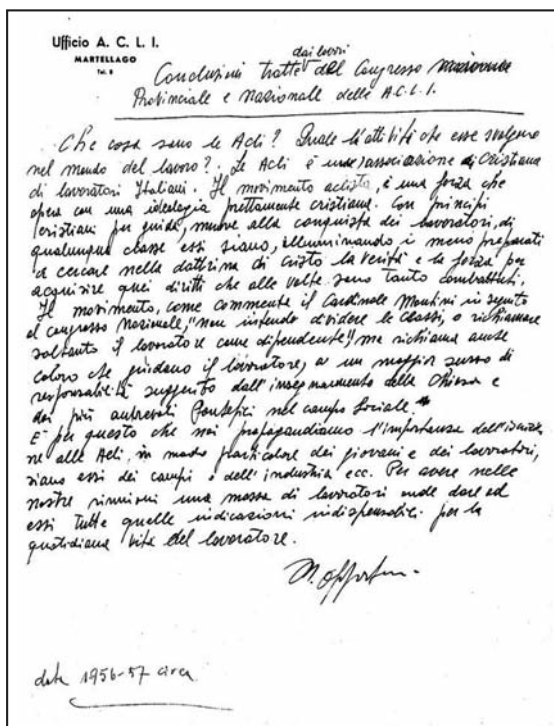 Ufficio A. C. L. I.
MARTELLAGO
Tel. 8
dai lavori
Conclusioni tratte del Congresso
Provinciale e Nazionale delle A.C.L.I.
Che cosa sono le Acli? Quale l'attività che esse svolgono
nel mondo del lavoro? Le Acli è associazione di Cristiana
di lavoratori Italiani. Il movimento aclista, è una forza che
opera con una ideologia prettamente cristiana. Con principi
cristiani per guida, muove alla conquista dei lavoratori, di
qualunque classe essi siano, illuminando i meno preparati
a cercare nella dottrina di Cristo la verità e la forza per
acquisire quei diritti che alle volte sono tanto combattuti.
Il movimento, come commenta il Cardinale Montini in seguito
al congresso Nazionale, "non intende dividere le classi, o richiamare
soltanto il lavoratore come dipendente" ma richiama anche
coloro che guidano il lavoratore, a un maggior senso di
responsabilità suggerito dall'insegnamento della Chiesa e
dei più autorevoli Pontefici nel campo Sociale.
E' per questo che noi propagandiamo l'importanza dell'iscrizio
ne alle Acli, in modo particolare dei giovani e dei lavoratori,
siano essi dei campi o dell'industria ecc. Per avere nelle
nostre riunioni una massa di lavoratori onde dare ad
essi tutte quelle indicazioni indispensabili per la
quotidiana vita del lavoratore.
data 1956-57 circa